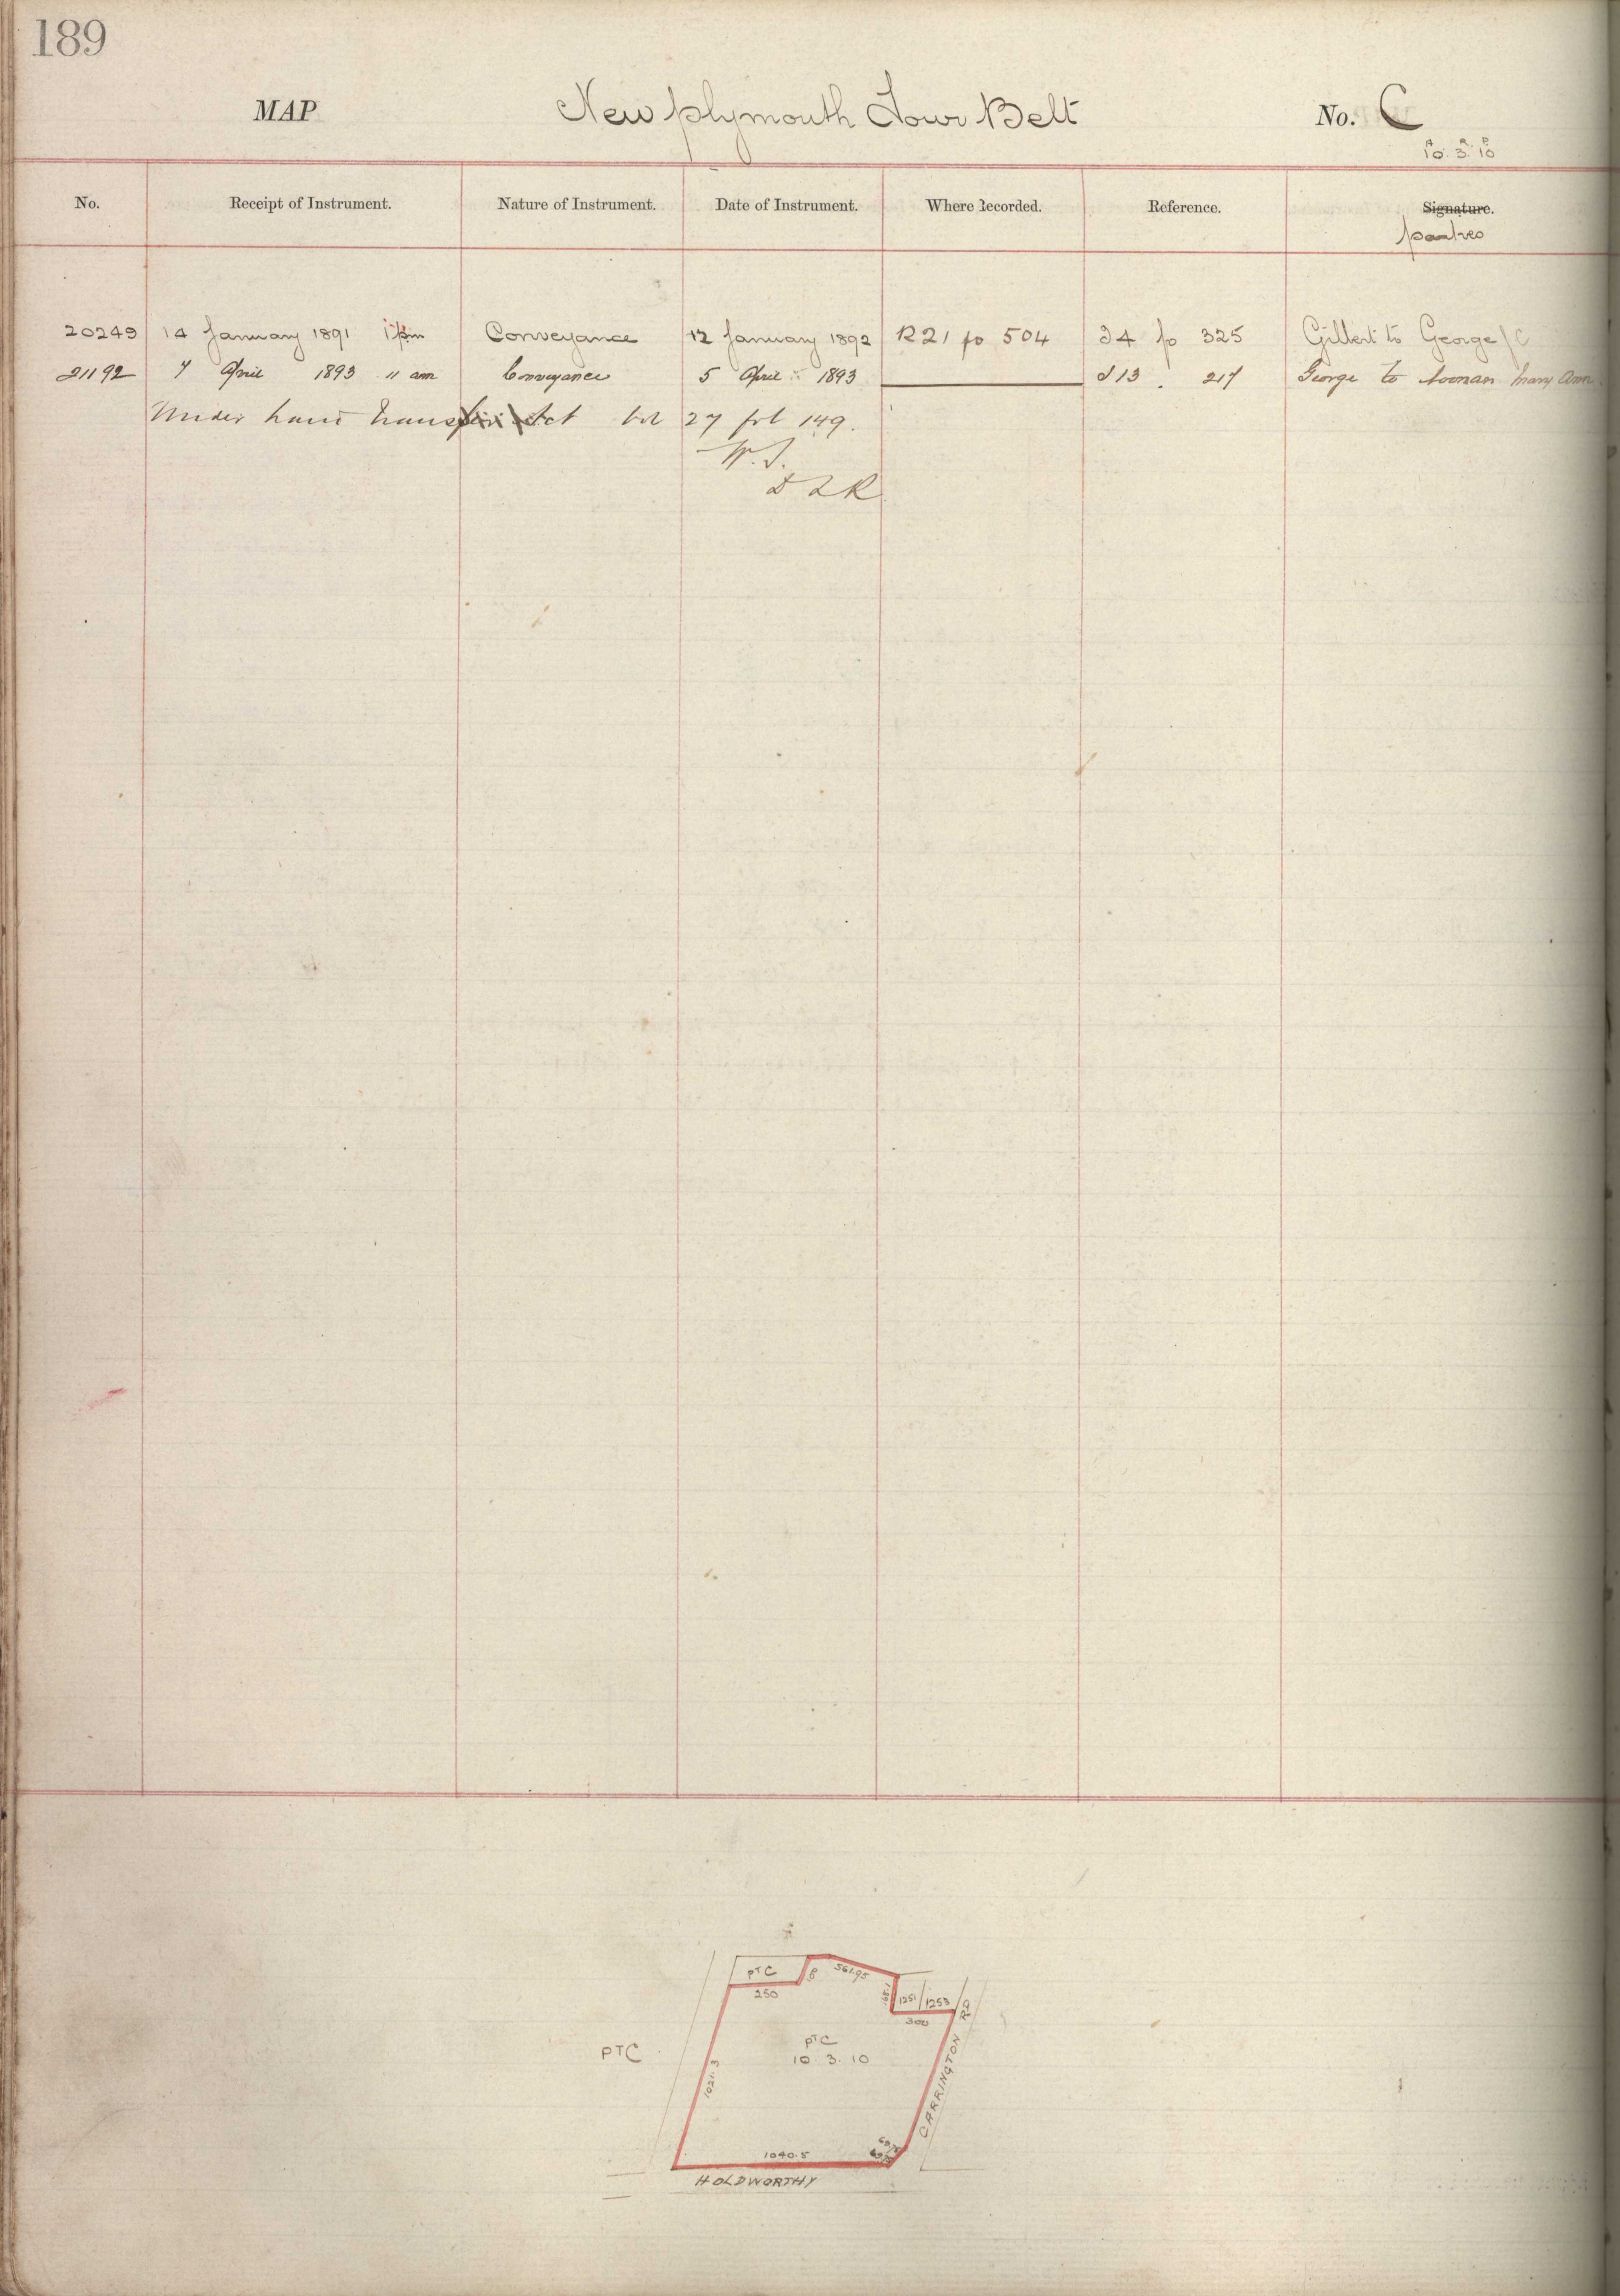 189
MAP New plymouth Town Belt No. C
A R P
10. 3. 10
No. Receipt of Instrument. Nature of Instrument. Date of Instrument. Where Recorded. Reference. Signature.
parties
20249 14 January 1891 1 pm Conveyance 12 January 1892 R21 fo 504 34 fo 325 Gilbert to George
21192 7 April 1893 11 am Conveyance 5 April 1893 d 13 . 217 George to Noonan Mary Ann
Under Land Transfer Act Vol 27 fol 149.
W.S.
D L R
PTC
250
561.95
1251 1253
300
RD
PTC
PTC
10. 3. 10
CARRINGTON
1021.3
1040.5
HOLDWORTHY